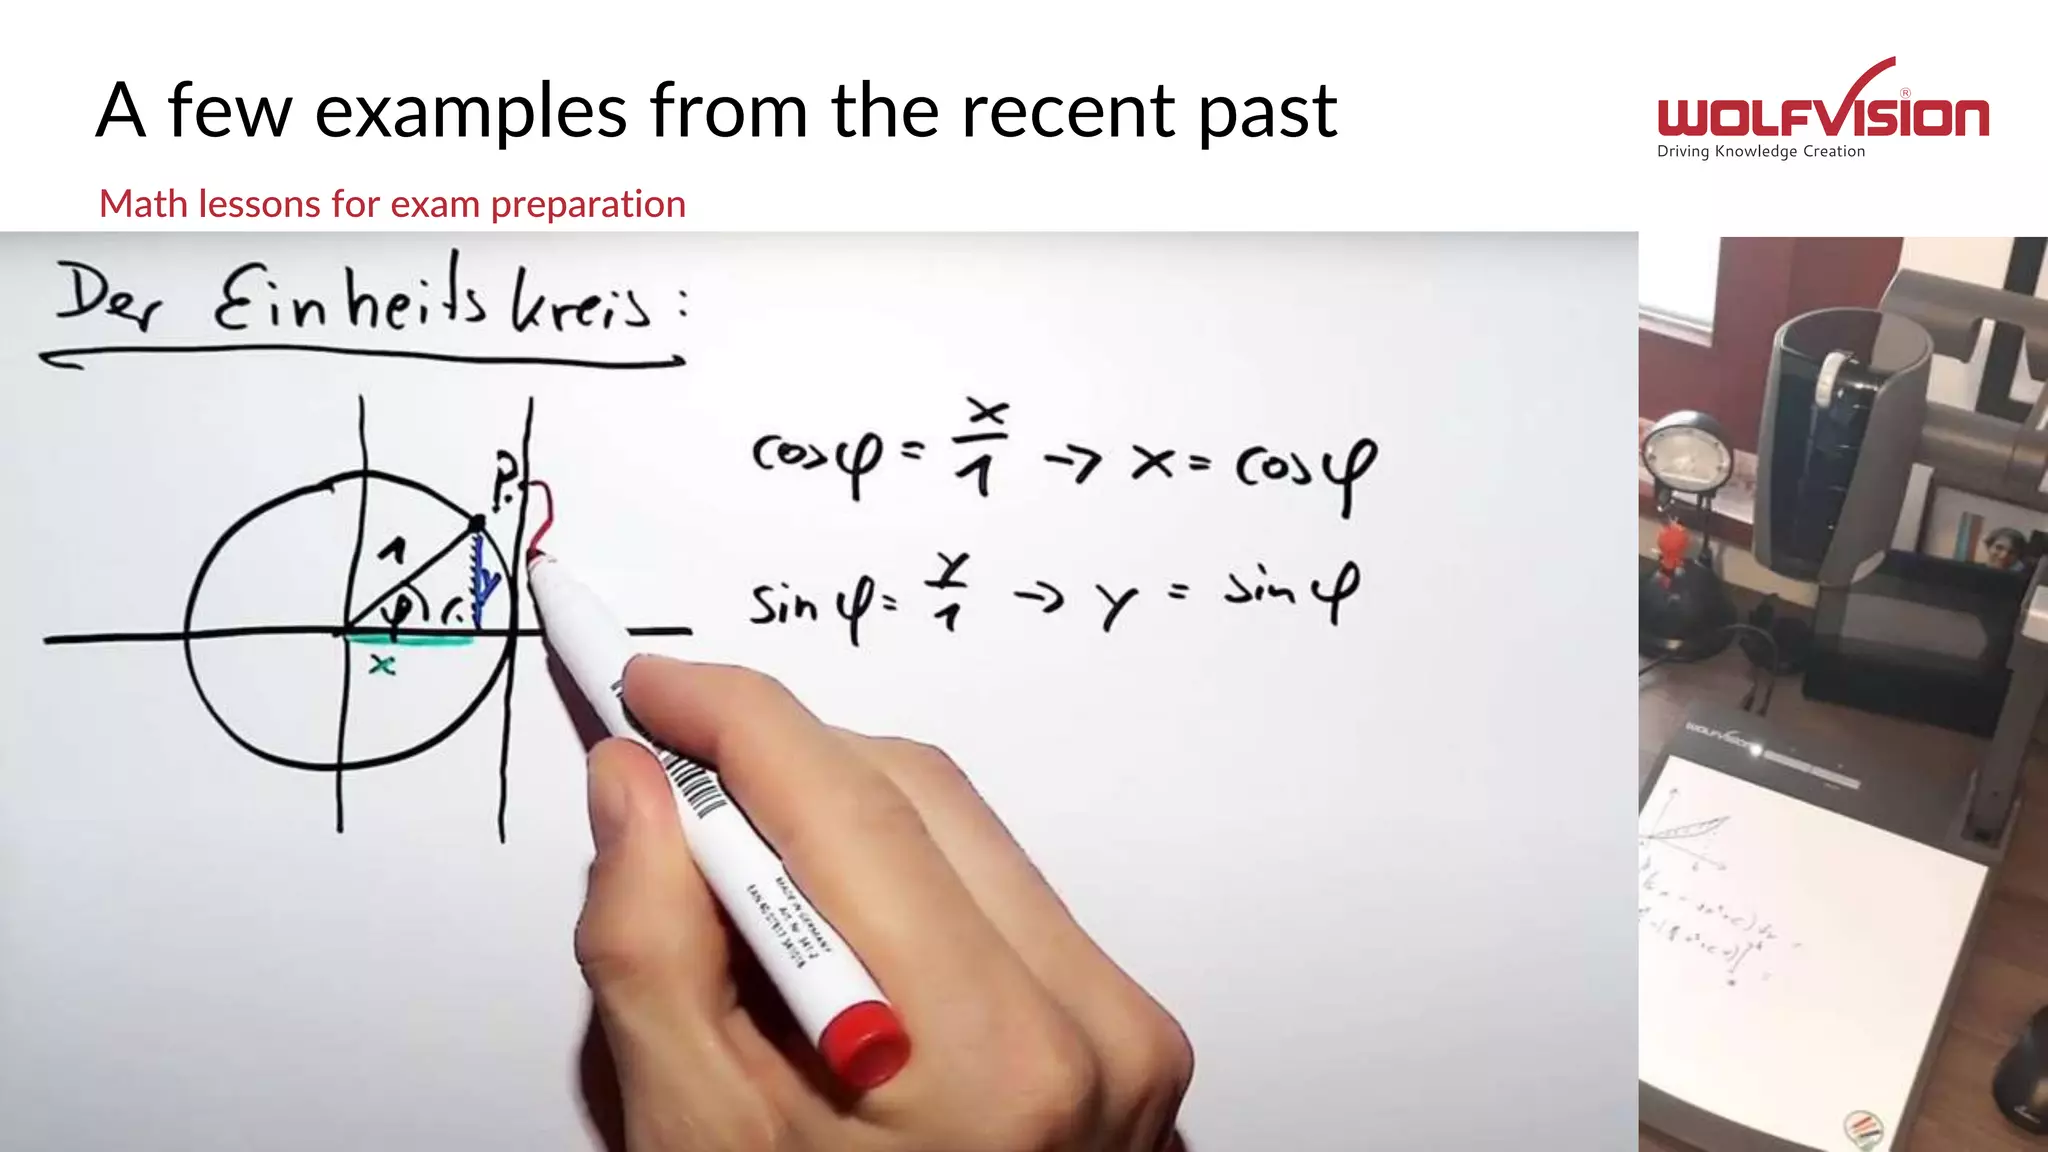 A few examples from the recent past
WOLFVISION®
Driving Knowledge Creation
Math lessons for exam preparation
Der Einheitskreis:
P.
1
φ
y
x
cosφ = x/1 → x = cosφ
sinφ = y/1 → y = sinφ
MADE IN GERMANY
WOLFVISION